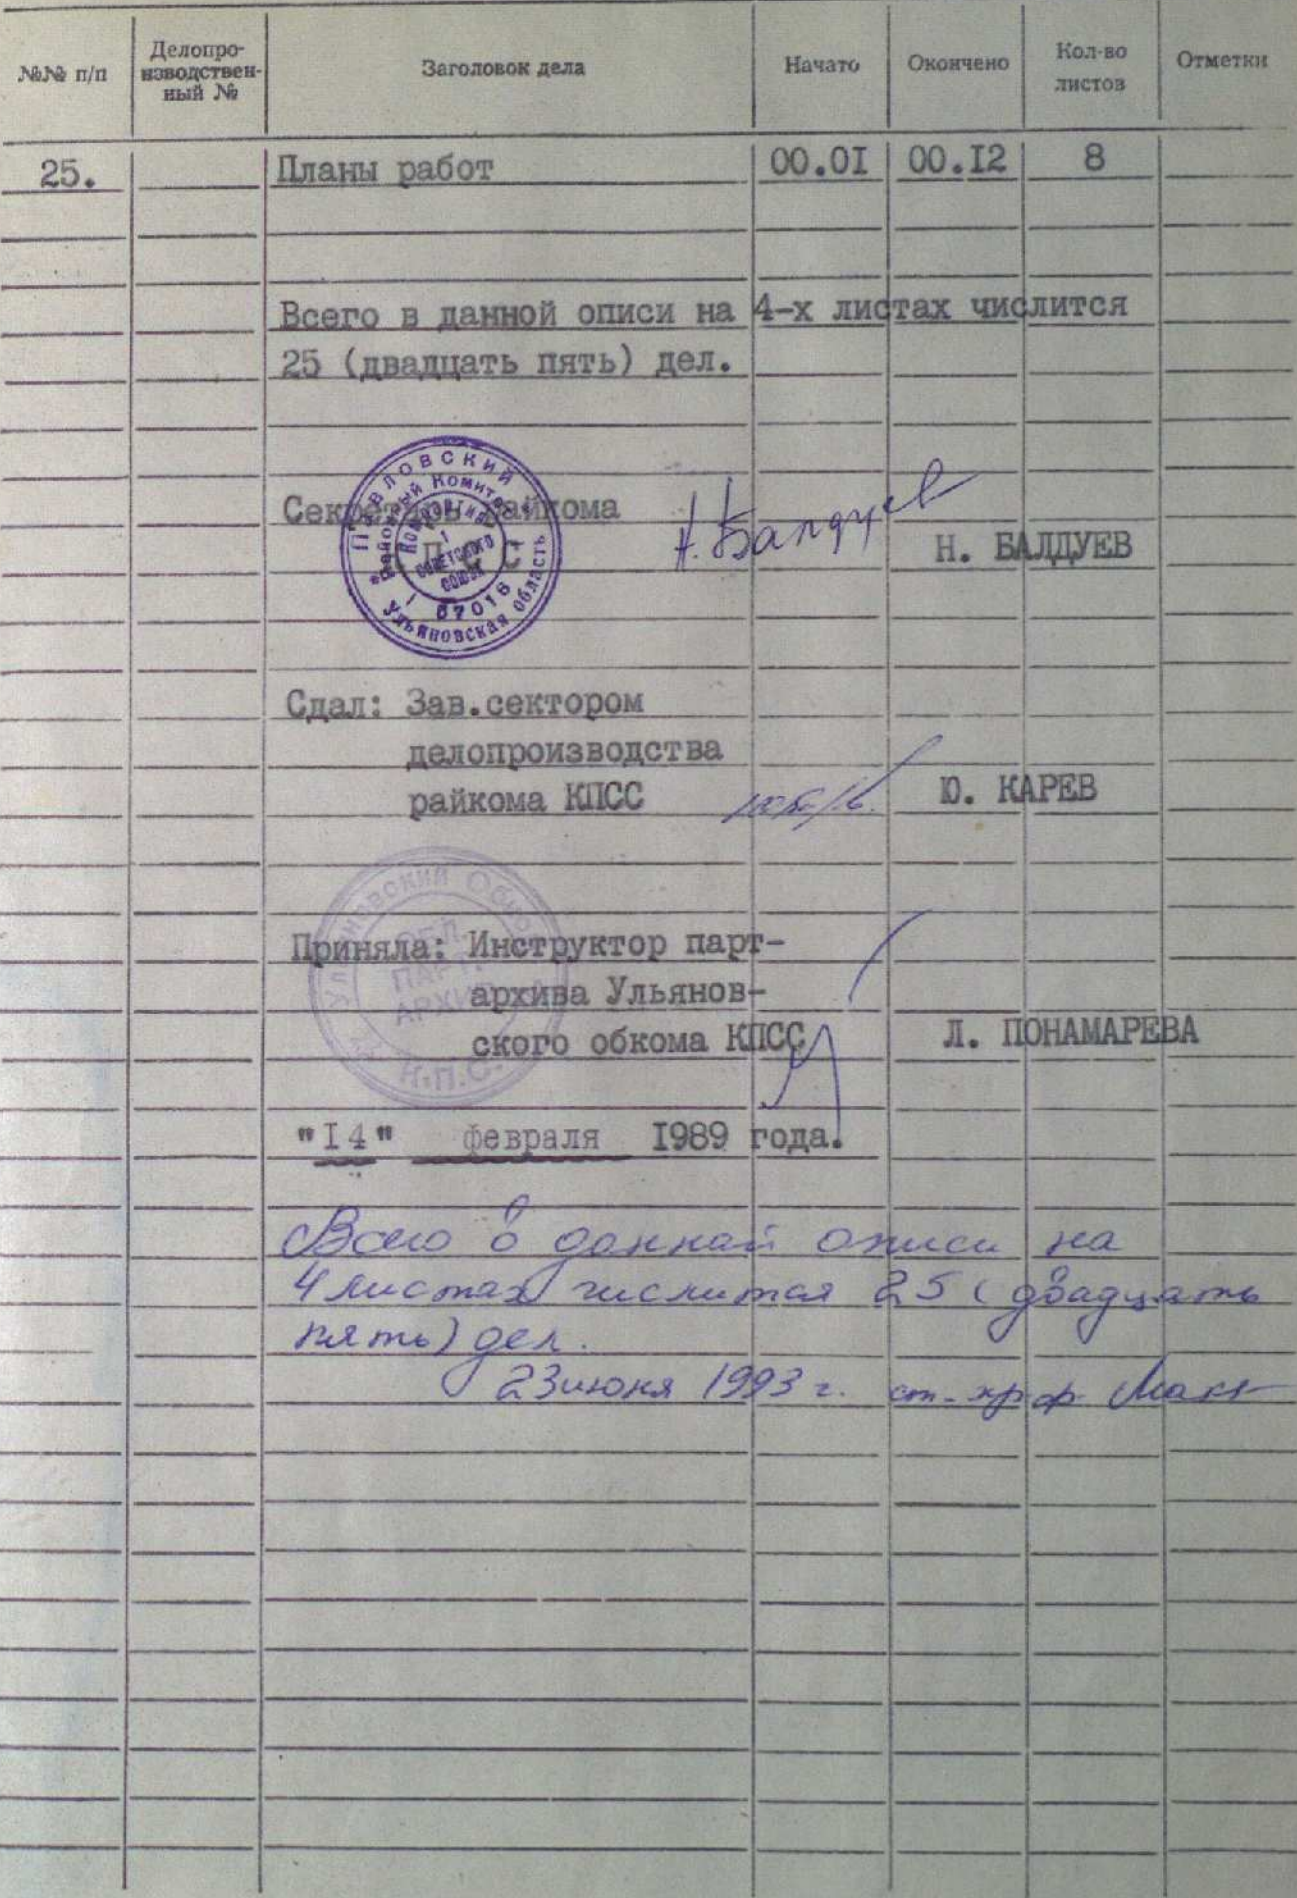 №№ п/п
Делопро-
изводствен-
ный №
Заголовок дела
Начато
Окончено
Кол-во
листов
Отметки
25. Планы работ 00.01 00.12 8
Всего в данной описи на 4-х листах числится
25 (двадцать пять) дел.
Секретарь райкома
КПСС
Н. Балдуев
Н. БАЛДУЕВ
Павловский
Ульяновская область
Районный Комитет
Советского
Союза
07016
Сдал: Зав.сектором
делопроизводства
райкома КПСС Ю. КАРЕВ
Приняла: Инструктор парт-
архива Ульянов-
ского обкома КПСС Л. ПОНАМАРЕВА
Ульяновский
ПАРТ.
АРХИВ
К.П.С.
"14" февраля 1989 года.
Всего в данной описи на
4 листах числится 25 (двадцать
пять) дел.
23 июня 1993 г.